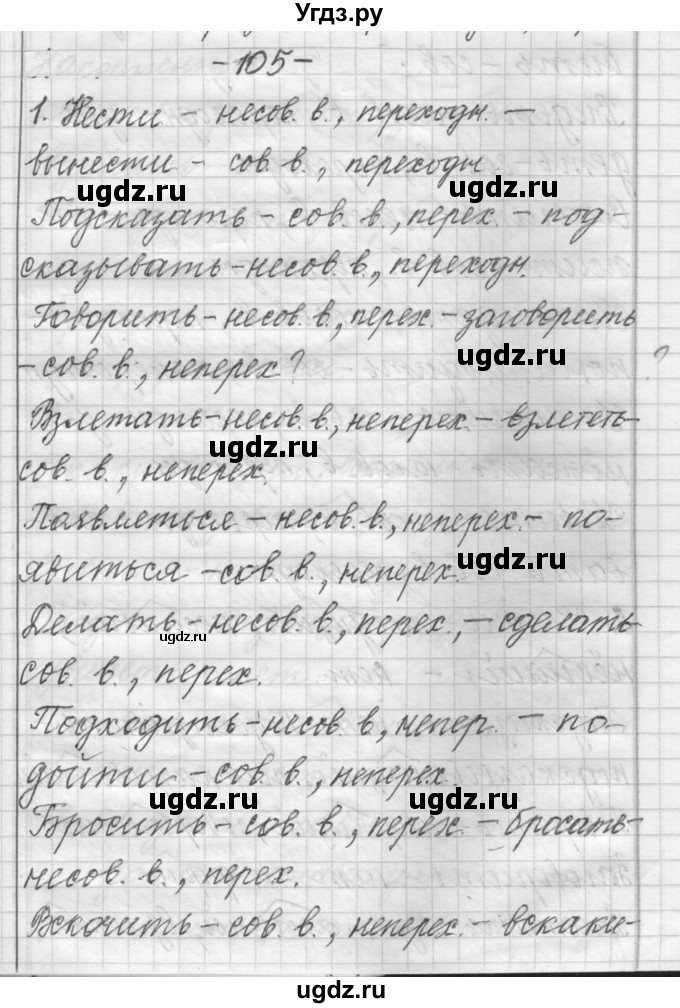 Угдз.ру
- 105 -
1. Нести - несов. в., переходн. -
вынести - сов. в., переходн
ugdz.ru ugdz.ru
Подсказать - сов. в., перех. - под-
сказывать - несов. в., переходн.
Говорить - несов. в., перех. - заговорить
ugdz.ru
- сов. в., неперех?
?
Взлетать - несов. в., неперех. - взлететь-
ugdz.ru
сов. в., неперех.
Появляться - несов. в., неперех. - по-
явиться - сов. в., неперех.
ugdz.ru
Делать - несов. в., перех., - сделать-
ugdz.ru
сов. в., перех.
Подходить - несов. в, непер. - по-
дойти - сов. в., неперех.
ugdz.ru ugdz.ru
Бросить - сов. в., перех. - бросать-
несов. в., перех.
Вскочить - сов. в., неперех. - вскаки-
ugdz.ru